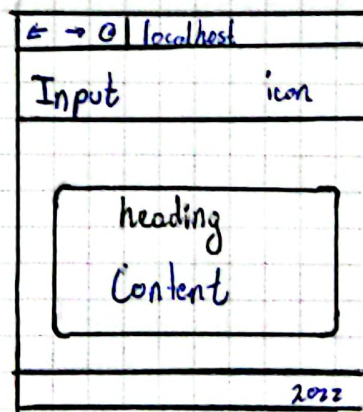 localhost
Input icon
heading
Content
2022